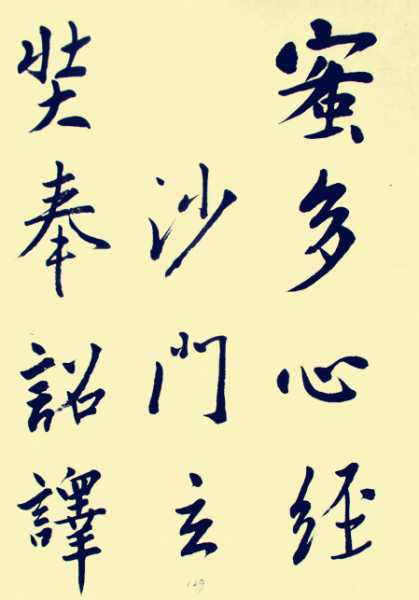 蜜多心経
沙門玄
奘奉詔譯
129